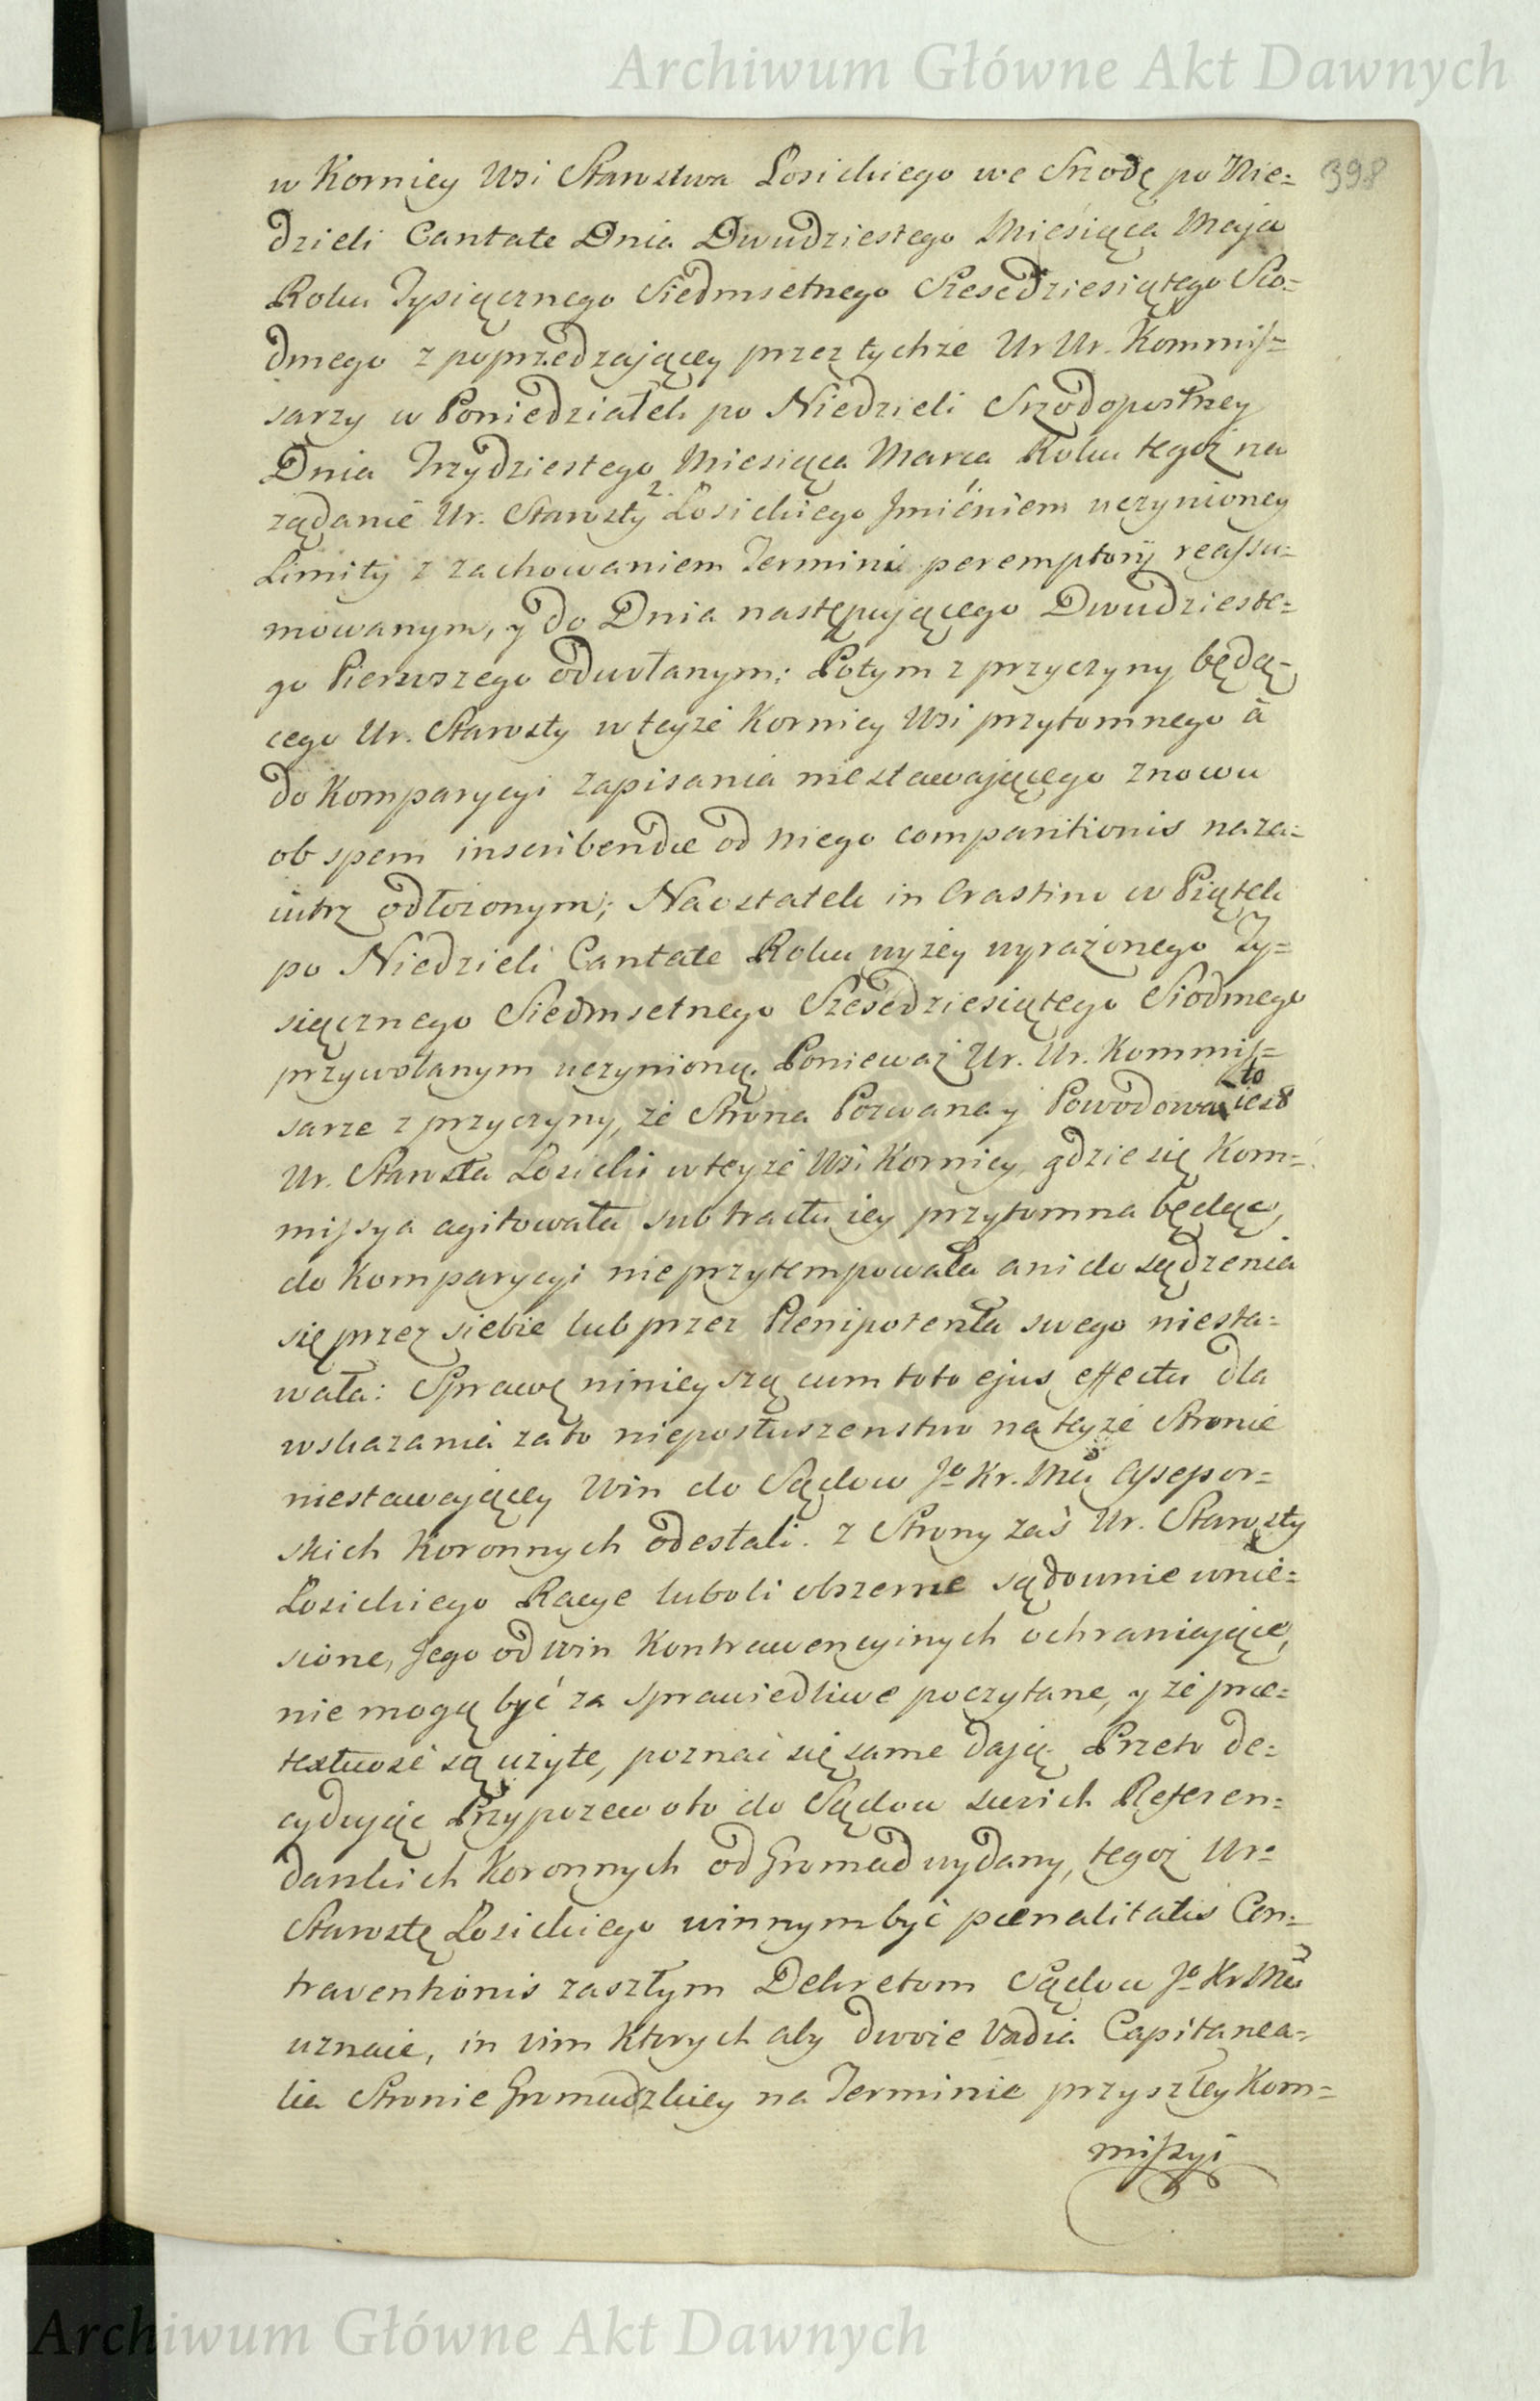 Archiwum Główne Akt Dawnych
398
w Kornicy Wsi Starostwa Łosickiego we Srzodę po Nie=
dzieli Cantate Dnia Dwudziestego Miesiąca Maja
Roku Tysiącznego Siedmsetnego Szesćdziesiątego Sio=
dmego z poprzedzającey przez tychże Ur Ur. Kommis=
sarzy w Poniedziałek po Niedzieli Srzodopostney
Dnia Trzydziestego Miesiąca Marca Roku tegoż na
żądanie Ur. Starosty Łosickiego Imieniem uczynioney
Limity z zachowaniem Termini peremptorij reassu=
mowanym, y do Dnia następującego Dwudzieste=
go Pierwszego odwołanym: Potym z przyczyny będą=
cego Ur. Starosty w teyże Kornicy Wsi przytomnego á
do Komparycyi zapisania niestawającego znowu
ob spem inscribendæ od niego comparitionis naza=
iutrz odłożonym; Naostatek in Crastino w Piątek
po Niedzieli Cantate Roku wyżey wyrażonego Ty=
siącznego Siedmsetnego Szesćdziesiątego Siodmego
przywołanym uczynioną. Ponieważ Ur. Ur. Kommis=
sarze z przyczyny, że Strona Pozwana y Powodowa to iest
Ur. Starosta Łosicki w teyże Wsi Kornicy, gdzie się Kom=
missya agitowała sub tractu iey przytomna będąc,
do Komparycyi nie przytempowała ani do sądzenia
się przez siebie lub przez Plenipotenta swego niesta=
wała: Sprawę ninieyszą cum toto ejus effectu dla
wskazania za to nieposłuszenstwo na teyże Stronie
niestawającey Win do Sądow Jo Kr. Mci Assessor=
skich Koronnych odesłali. z Strony zaś Ur. Starosty
Łosickiego Racye luboli obszerne sądownie wnie=
sione, Jego od win Kontrawencyinych ochraniające,
nie mogą być za sprawiedliwe poczytane, y że præ=
textuose są użyte, poznać się same dają. Przeto de=
cydując Przypozew oto do Sądow swoich Referen=
darskich Koronnych od Gromad wydany, tegoż Ur.
Starostę Łosickiego winnym być pœnalitatis Con=
traventionis zaszłym Dekretom Sądow Jo Kr Mci
uznaie, in vim ktorych aby dwoie Vadia Capitanea=
lia Stronie Gromadzkiey na Terminie przyszłey Kom=
missyi
Archiwum Główne Akt Dawnych